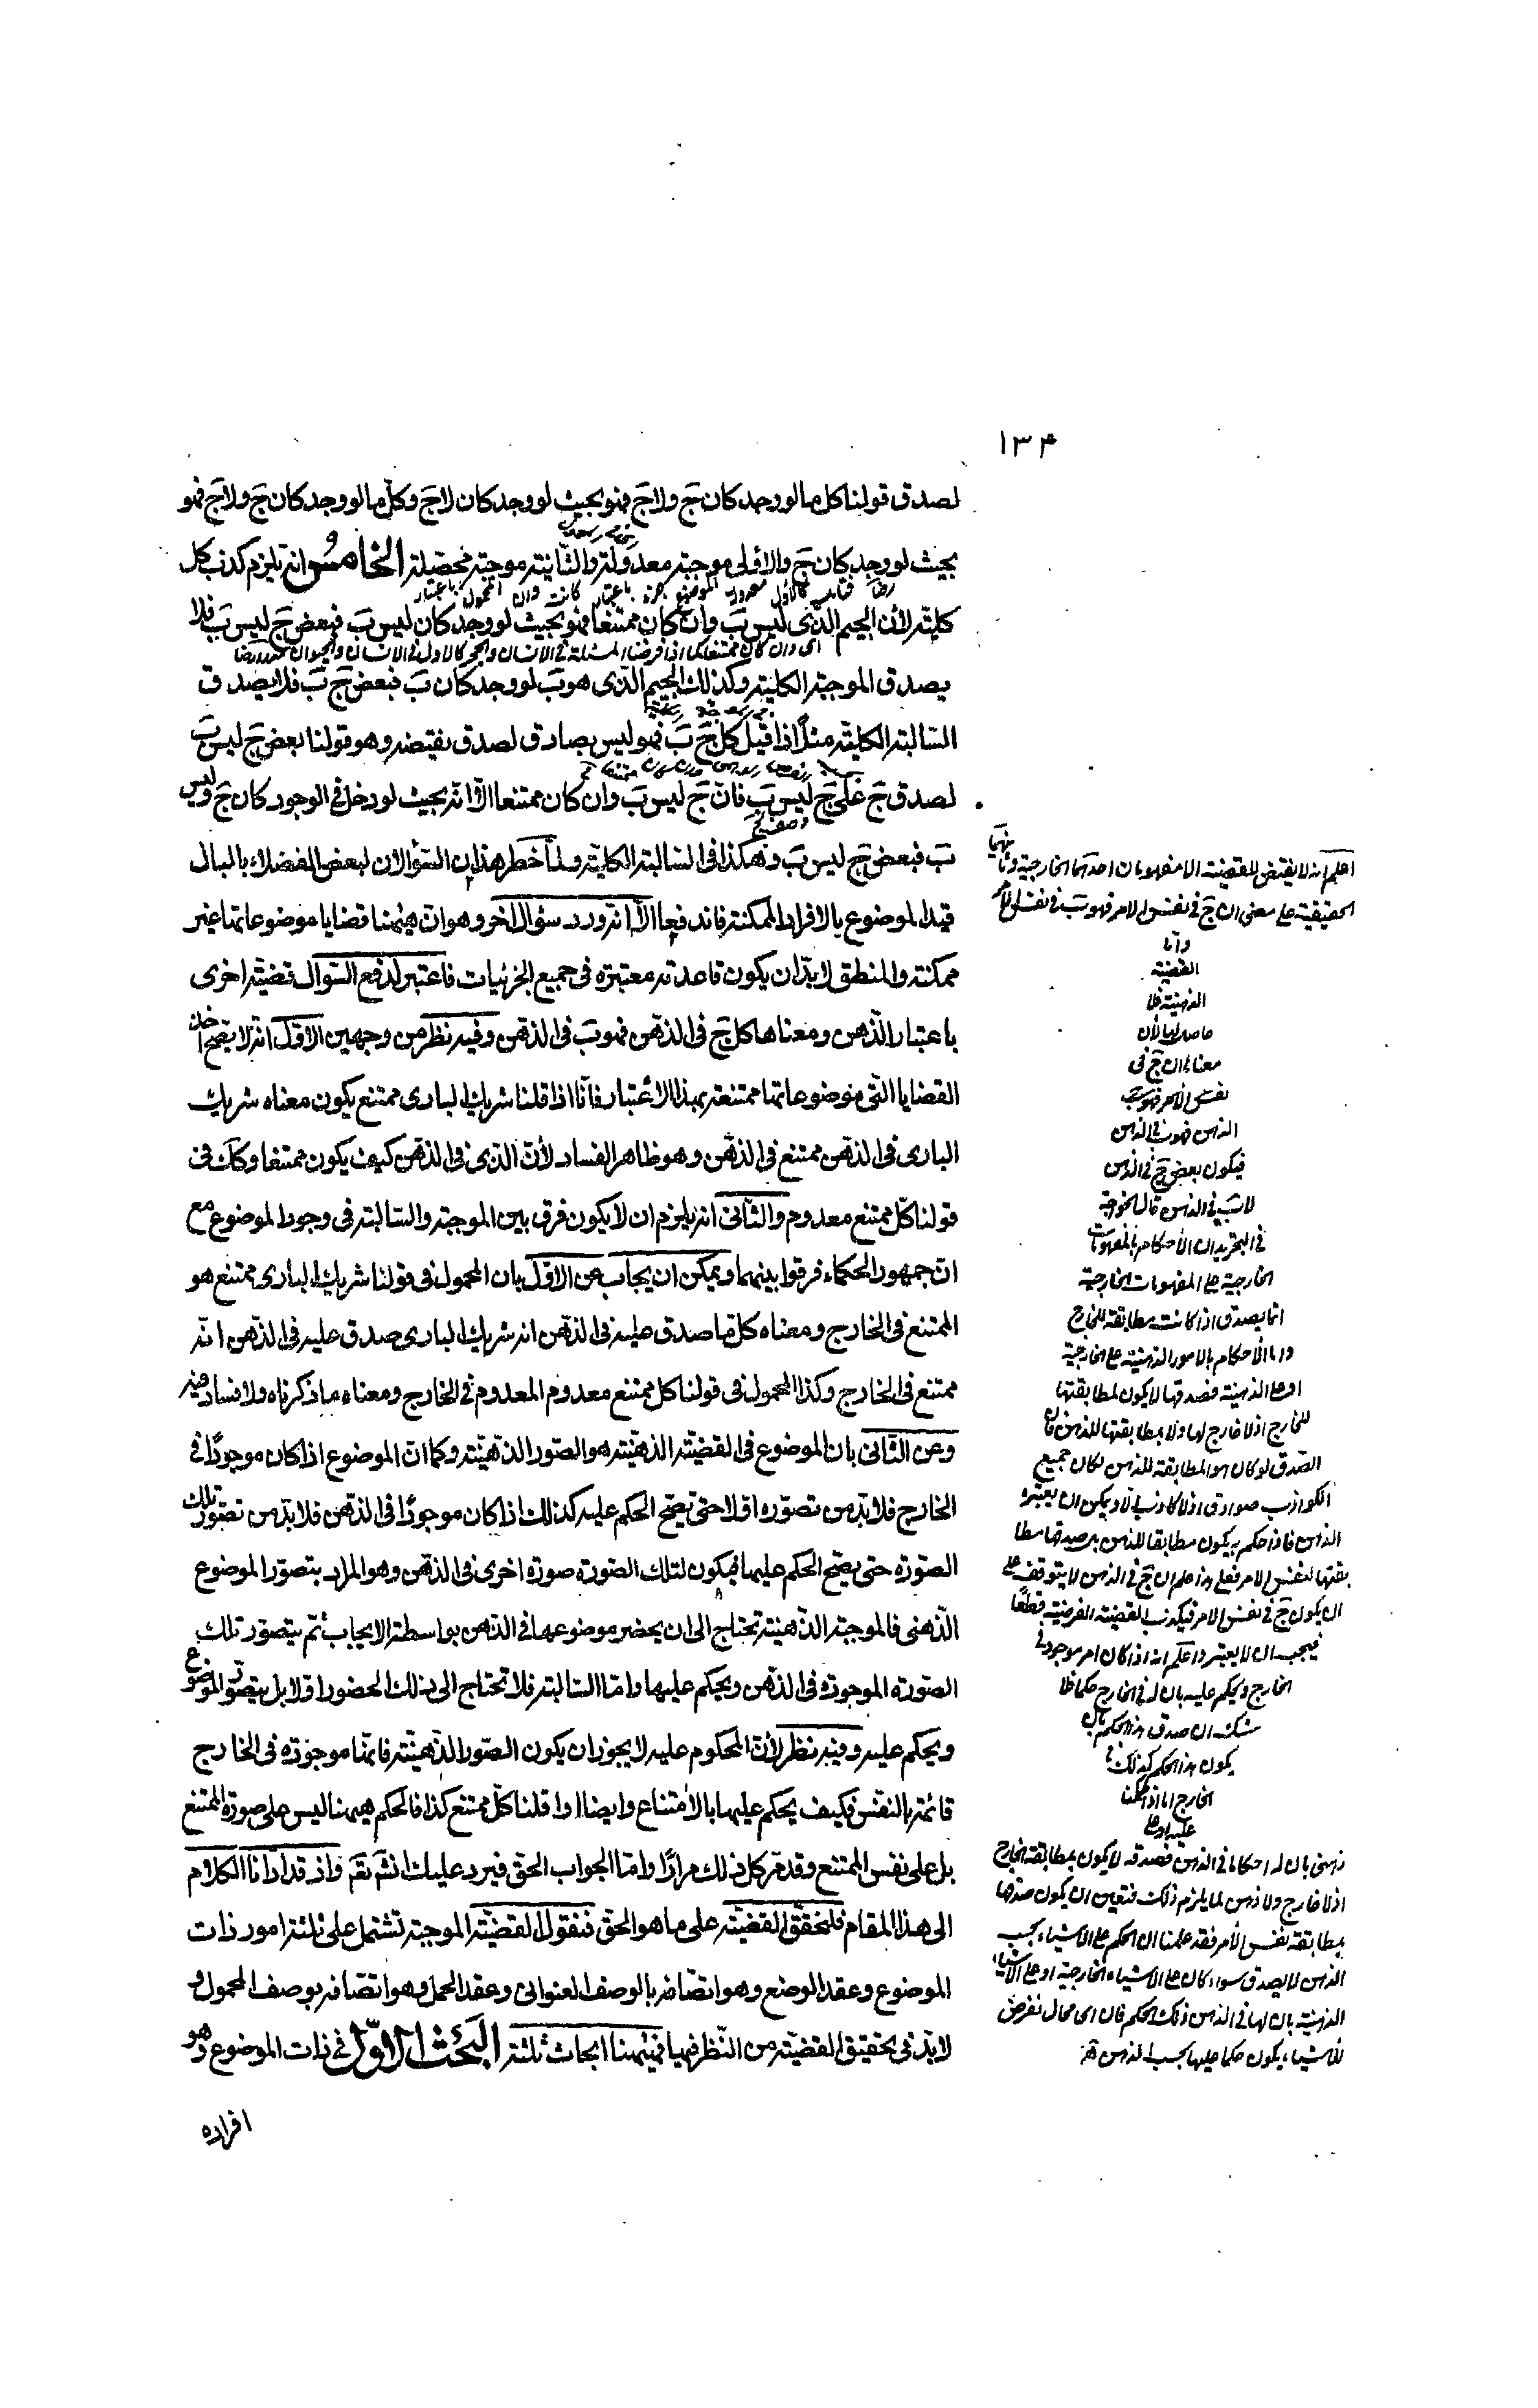 ١٣۴
لصدق قولنا كل ما لو وجد كان جَ ولا جَ فهو بحيث لو وجد كان لا جَ وكل ما لو وجد كان جَ ولا جَ فهو
بحيث لو وجد كان جَ والاولى موجبة معدولة والثانية موجبة محصلة الخامس انه يلزم كذب كل
كلية لأن الجيم الذى ليس بَ وان كان ممتنعا فهو بحيث لو وجد كان ليس بَ فبعض جَ ليس بَ فلا
اى وان كان ممتنعا كما اذا فرضنا المسئلة فى الانسان والحجر كالاول فى الانسان والحيوان
يصدق الموجبة الكلية وكذلك الجيم الذى هو بَ لو وجد كان بَ فبعض جَ بَ فلا يصدق
السالبة الكلية مثلاً اذا قيل كل جَ بَ فهو ليس بصادق لصدق نقيضه وهو قولنا بعض جَ ليس بَ
لصدق جَ على جَ ليس بَ فان جَ ليس بَ وان كان ممتنعا الا انه بحيث لو دخل فى الوجود كان جَ وليس
بَ فبعض جَ ليس بَ وهكذا فى السالبة الكلية ولما خطر هذان السؤالان لبعض الفضلاء بالبال
قيد الموضوع بالافراد الممكنة فاندفعا الا انه ورد سؤال اخر وهو ان هيهنا قضايا موضوعاتها غير
ممكنة والمنطق لابد ان يكون قاعدته معتبرة فى جميع الجزئيات فاعتبر لدفع السؤال قضية اخرى
باعتبار الذهن ومعناها كل جَ فى الذهن فهو بَ فى الذهن وفيه نظر من وجهين الاول انه لا يصح اخذ
القضايا التى موضوعاتها ممتنعة بهذا الاعتبار فانا اذا قلنا شريك البارى ممتنع يكون معناه شريك
البارى فى الذهن ممتنع فى الذهن وهو ظاهر الفساد لأن الذى فى الذهن كيف يكون ممتنعا وكك فى
قولنا كل ممتنع معدوم والثانى انه يلزم ان لا يكون فرق بين الموجبة والسالبة فى وجود الموضوع مع
ان جمهور الحكماء فرقوا بينهما ويمكن ان يجاب عن الاول بان المحمول فى قولنا شريك البارى ممتنع هو
الممتنع فى الخارج ومعناه كل ما صدق عليه فى الذهن انه شريك البارى صدق عليه فى الذهن انه
ممتنع فى الخارج وكذا المحمول فى قولنا كل ممتنع معدوم المعدوم فى الخارج ومعناه ما ذكرناه ولا فساد فيه
وعن الثانى بان الموضوع فى القضية الذهنية هو الصور الذهنية وكما ان الموضوع اذا كان موجودًا فى
الخارج فلا بد من تصوره اولا حتى يصح الحكم عليه كذلك اذا كان موجودًا فى الذهن فلا بد من تصور تلك
الصورة حتى يصح الحكم عليها فيكون لتلك الصورة صورة اخرى فى الذهن وهو المراد بتصور الموضوع
الذهنى فالموجبة الذهنية تحتاج الى ان يحضر موضوعها فى الذهن بواسطة الايجاب ثم يتصور تلك
الصورة الموجودة فى الذهن ويحكم عليها واما السالبة فلا تحتاج الى ذلك الحضور اولا بل يتصور الموضوع
ويحكم عليه وفيه نظر لأن المحكوم عليه لا يجوز ان يكون الصور الذهنية فانها موجودة فى الخارج
قائمة بالنفس فكيف يحكم عليها بالامتناع وايضا اذا قلنا كل ممتنع كذا فالحكم هيهنا ليس على صورة الممتنع
بل على نفس الممتنع وقد مر كل ذلك مرارًا واما الجواب الحق فيرد عليك انش تع واذ قد ادّانا الكلام
الى هذا المقام فلنحقق القضية على ما هو الحق فنقول القضية الموجبة تشتمل على ثلثة امور ذات
الموضوع وعقد الوضع وهو اتصافه بالوصف العنوانى وعقد الحمل وهو اتصافه بوصف المحمول و
لابد فى تحقيق القضية من النظر فيها فهيهنا ابحاث ثلثة البحث الاول فى ذات الموضوع وهو
افراده
اعلم انه لا يقتض للقضية الا مفهومان احدهما الخارجية وثانيهما
الحقيقية على معنى ان جَ فى نفس الامر فهو بَ فى نفس الامر
واما
القضية
الذهنية فلا
حاصل لها لأن
معناه ان جَ فى
نفس الأمر فهو بَ
الذهن فهو ب فى الذهن
فيكون بعض جَ فى الذهن
لا بَ فى الذهن قال الخوجه
فى التجريد ان الأحكام بالمفهومات
الخارجية على المفهومات الخارجية
انما يصدق اذا كانت مطابقة للخارج
واما الأحكام بالامور الذهنية على الخارجية
او على الذهنية فصدقها لا يكون لمطابقتها
للخارج اذ لا خارج لها ولا بمطابقتها للذهن فان
الصدق لو كان هو المطابقة للذهن لكان جميع
الكواذب صوادق اذ لا كاذب الا ويمكن ان يعتبره
الذهن فاذا حكم به يكون مطابقا للذهن بل صدقها مطا
بقتها لنفس الامر فعلى هذا علم ان جَ فى الذهن لا يتوقف على
ان يكون جَ فى نفس الامر فيكذب القضية الفرضية قطعًا
فيجب ان لا يعتبر واعلم انه اذا كان امر موجود فى
الخارج ويحكم عليه بان له فى الخارج حكما فلا
شك ان صدق هذا الحكم بان
يكون هذا الحكم كذلك فى
الخارج اما اذا حكمنا
عليه او على
ذهنى بان له احكاما فى الذهن فصدقه لا يكون بمطابقة الخارج
اذ لا خارج ولا ذهن لما يلزم ذلك فتعين ان يكون صدقها
بمطابقة نفس الأمر فقد علمنا ان الحكم على الاشياء بحسب
الذهن لا يصدق سواء كان على الاشياء الخارجية او على الاشياء
الذهنية بان لها فى الذهن ذلك الحكم فان اى محال نفرض
للأشياء يكون حكما عليها بحسب الذهن